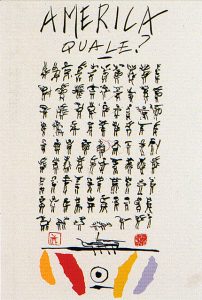 AMERICA
QUALE?